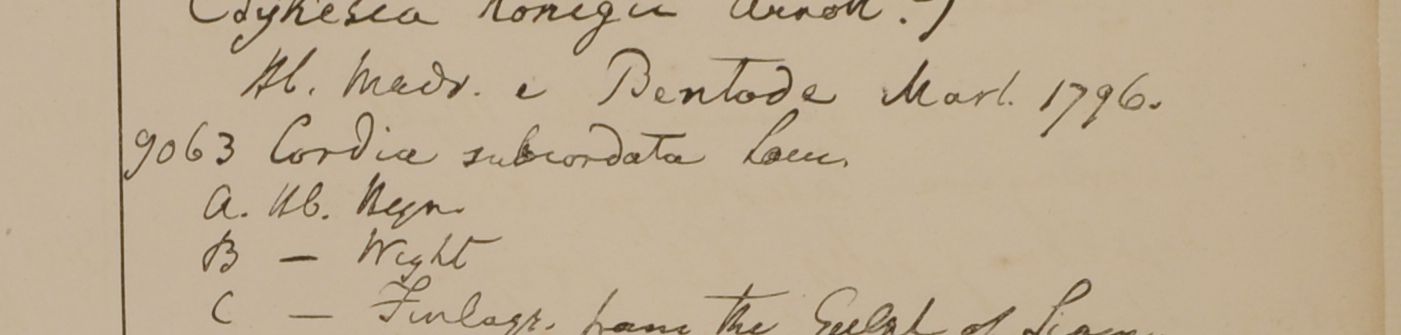 (Sykesia Konigii Arnott.)
Hb. Madr. e Bentode Mart. 1796.
9063 Cordia subcordata Lam.
A. Hb. Heyn.
B — Wight
C — Finlays. from the Gulph of Siam